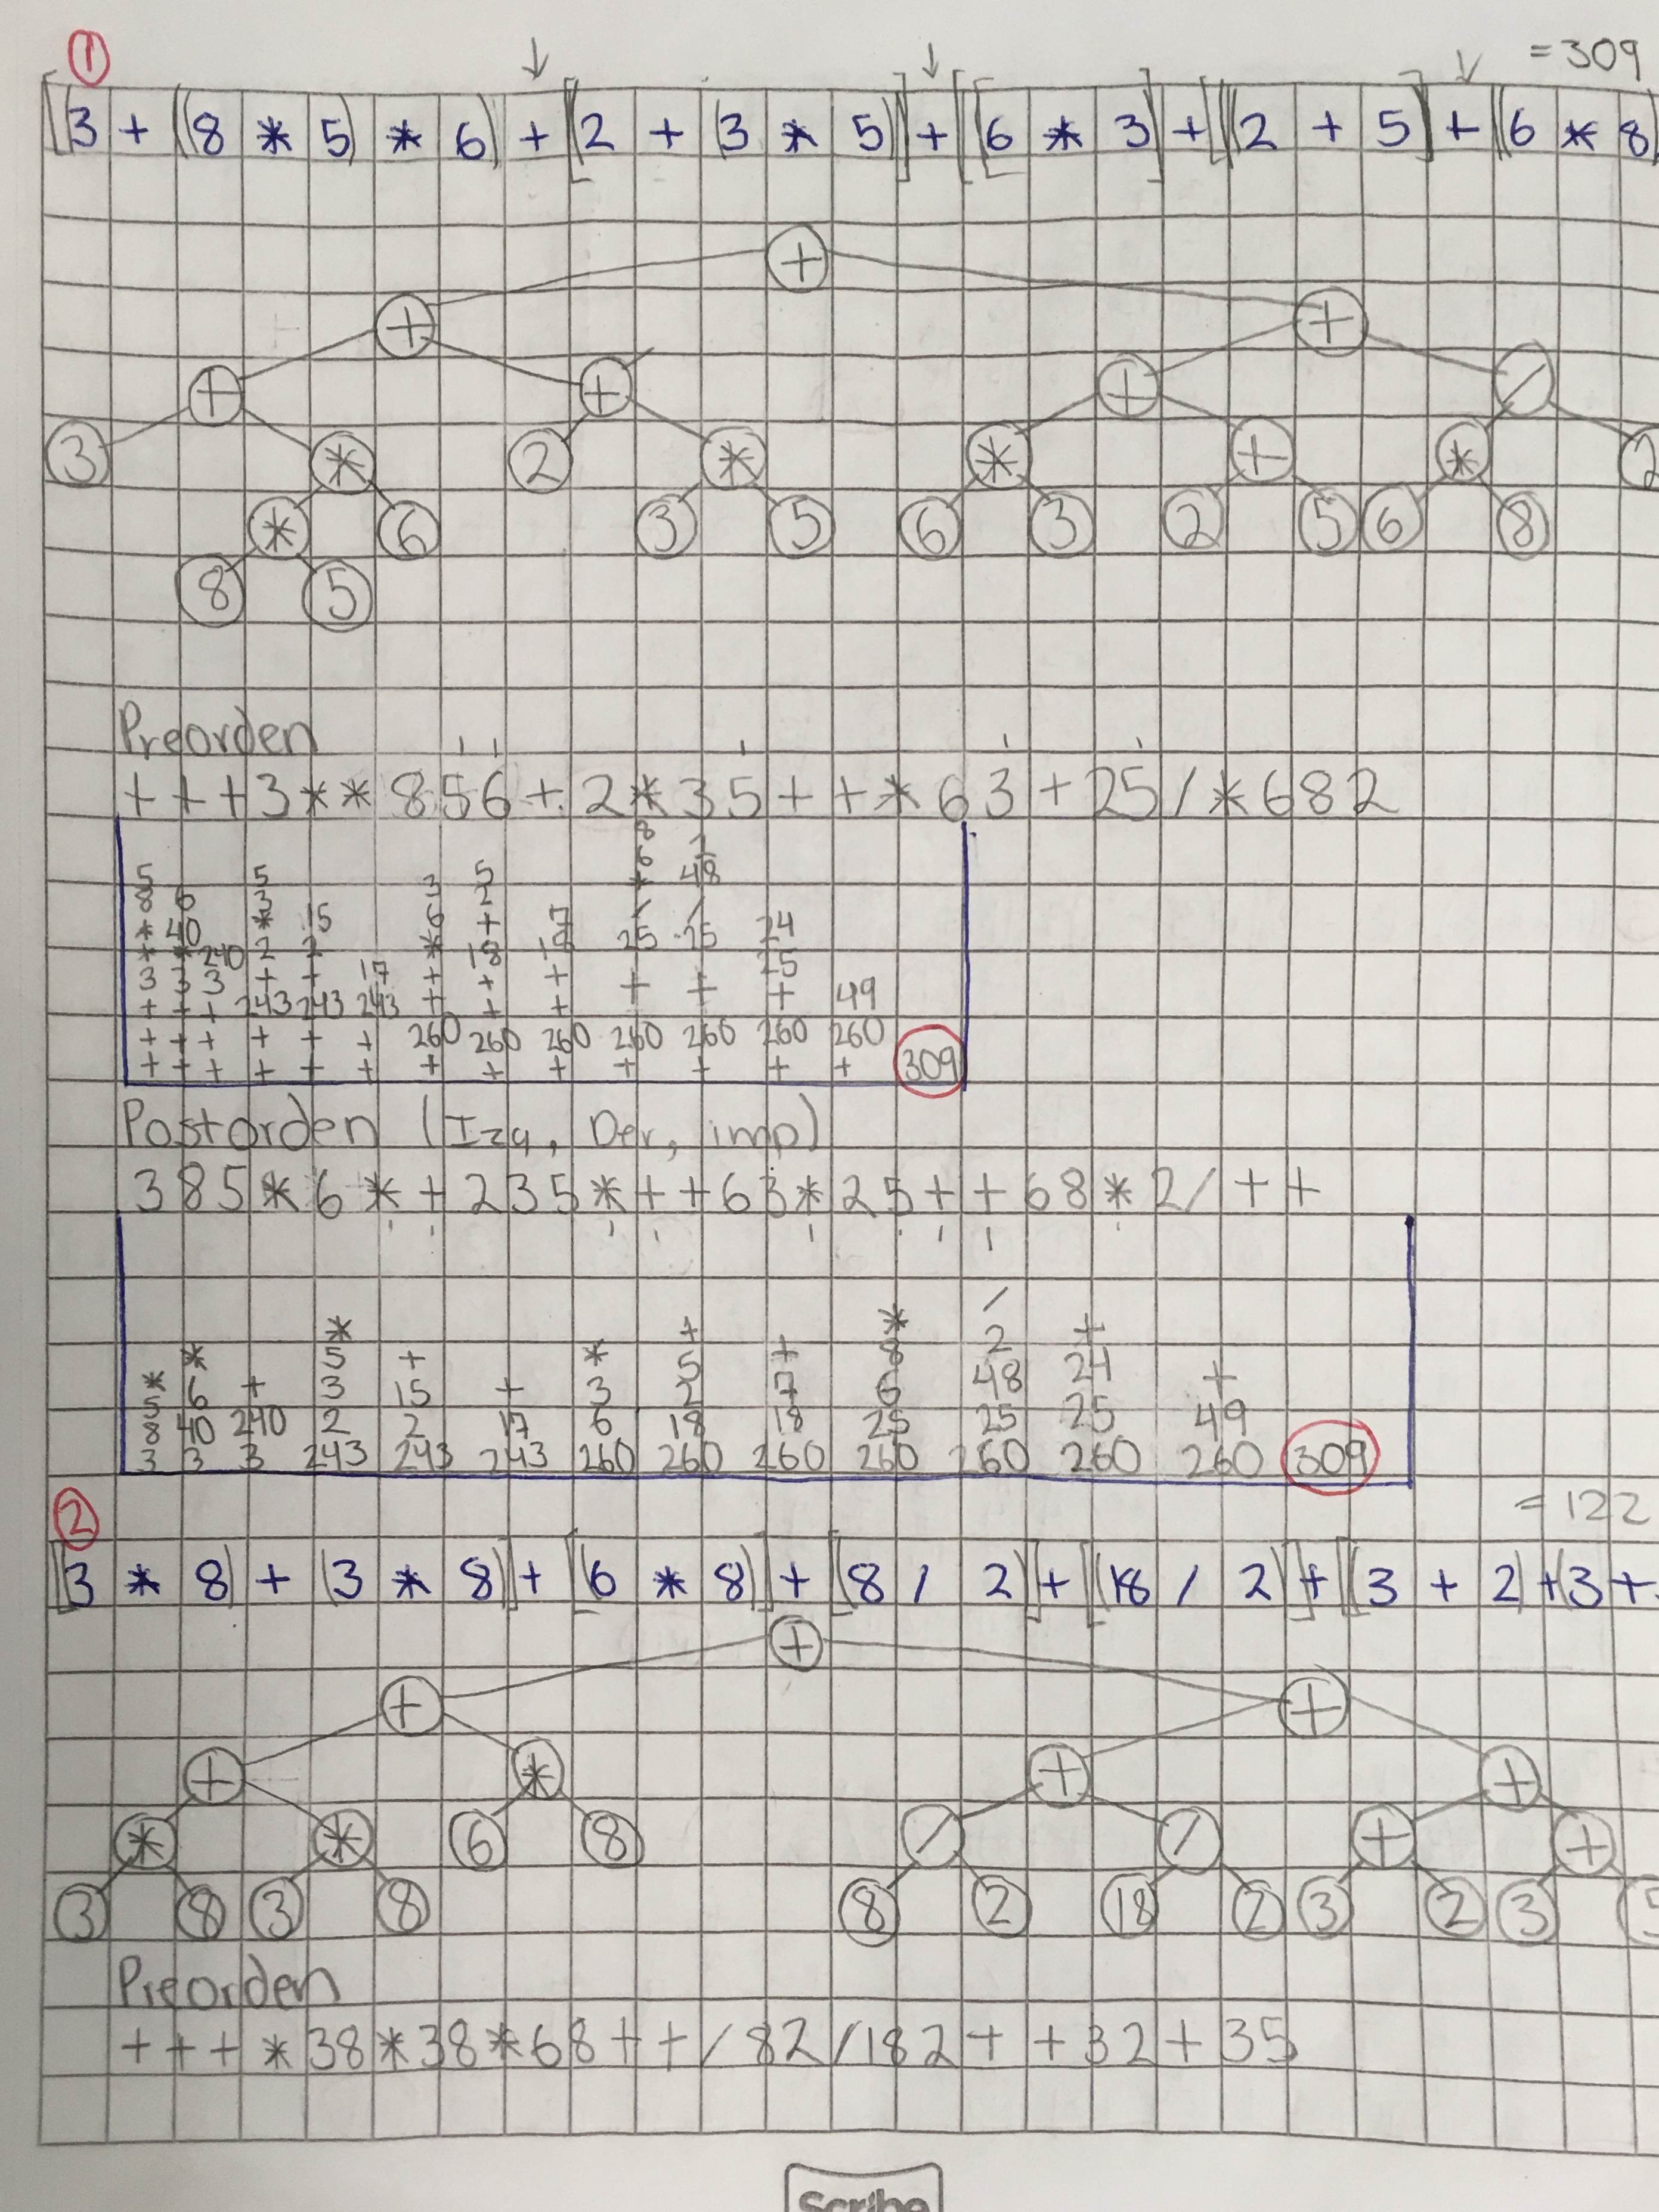 ① = 309
[(3 + ((8 * 5) * 6) + [2 + (3 * 5)] + [[6 * 3] + [(2 + 5] + [(6 * 8)
+
+ +
+ + + /
3 * 2 * * + * 2
* 6 3 5 6 3 2 5 6 8
8 5
Preorden
+ + + 3 * * 8 5 6 + 2 * 3 5 + + * 6 3 + 2 5 / * 6 8 2
8
6 2
5 5 3 5 * 48
8 6 3 6 2 / /
* 40 * 15 * + 7 25 25 24
* * 240 2 2 + 18 18 + + 25
3 3 3 + + 17 + + + + + +
+ + + 243 243 243 + + + 49
+ + + + + + 260 260 260 260 260 260 260
+ + + + + + + + + + + + + 309
Postorden (Izq, Der, imp)
3 8 5 * 6 * + 2 3 5 * + + 6 3 * 2 5 + + 6 8 * 2 / + +
* /
* * + * 2 +
* 5 + * 5 + 8 48 24 +
5 6 + 3 15 + 3 2 7 6 25 25 49
8 40 240 2 2 17 6 18 18 25
3 3 3 243 243 243 260 260 260 260 260 260 260 309
② = 122
[(3 * 8) + (3 * 8)] + [(6 * 8)] + [(8 / 2)] + [(18 / 2)] + [(3 + 2) + (3 +
+
+ +
+ * + +
* * 6 8 / / + +
3 8 3 8 8 2 18 2 3 2 3 5
Preorden
+ + + * 3 8 * 3 8 * 6 8 + + / 8 2 / 18 2 + + 3 2 + 3 5
Scribe